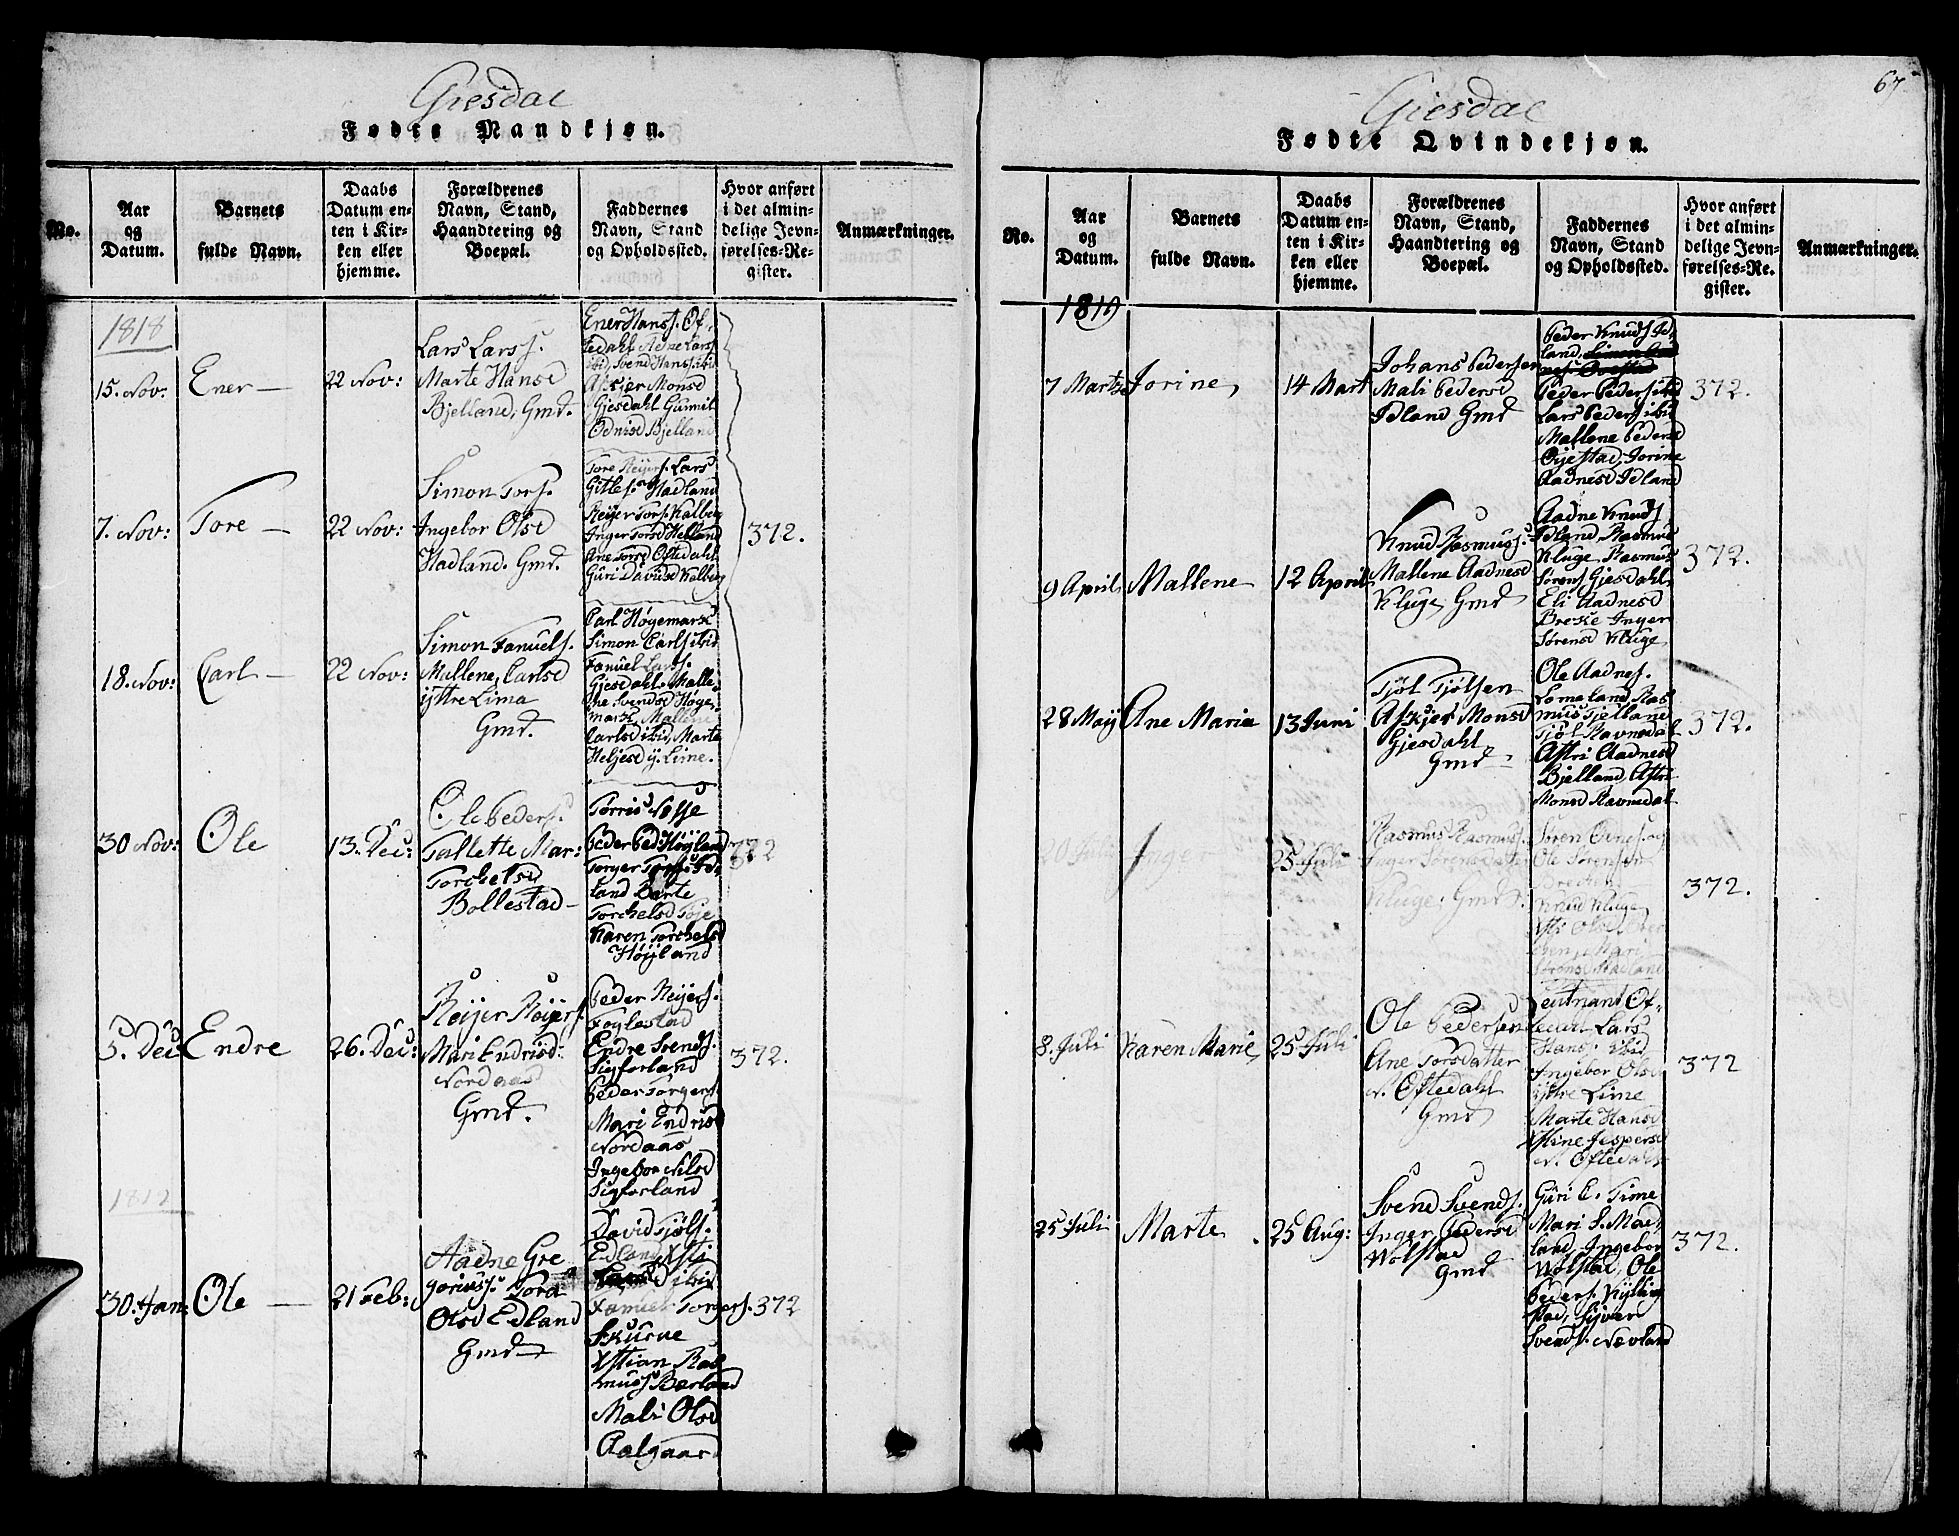 Giesdal
Fødte Mandkjøn.
No.
Aar
og
Datum.
Barnets
fulde Navn.
Daabs
Datum en-
ten i Kir-
ken eller
hjemme.
Forældrenes
Navn, Stand,
Haandtering og
Boepæl.
Faddernes
Navn, Stand
og Opholdssted.
Hvor anført
i det almin-
delige Jevn-
førelses-Re-
gister.
Anmærkninger.
1818
15. Nov:
Ener
22 Nov:
Lars Larss.
Marte Hansd
Bjelland, Gmd.
Ener Hanss. Of-
tedahl Adne Larss
ibid, Svend Hanss ibid
Askjer Monsd
Gjesdahl Gunnil
Odnisd Bjelland
7. Nov:
Tore
22 Nov:
Simon Tors.
Ingebor Olsd
Hadland. Gmd.
Tore Reijers. Lars
Gitles. Hadland
Reijer Tors. Kalberg
Inger Torsd Helland
Ane Torsd Oftedahl
Guri Davidsd Kalberg
372.
18. Nov:
Carl
22 Nov:
Simon Fanuels.
Mallene Carlsd
ijttre Lima
Gmd.
Carl Høgemark
Simon Carls ibid
Fanuel Larss.
Gjesdahl. Malle-
ne Svendsd Høge-
mark, Mallene
Carlsd ibid, Marte
Heljesd ÿ. Lime.
30 Nov:
Ole
13. Dec:
Ole Peders.
Tallette Mar:
Torchelsd
Bollestad
Tørris Næsse
Peder Ped: Høÿland
Torger Torss. Ed-
land Barte
Torchelsd Tøje
Karen Torchelsd
Høÿland
372
5. Dec
Endre
26. Dec:
Reijer Reijers.
Mari Endrisd:
Nordaas
Gmd.
Peder Reijers.
Foglestad
Endre Svends.
Sigforland
Peder Torgers.
Mari Endrisd
Nordaas
Ingebor Nilsd
Sigforland
372.
30. Jan:
Ole
21 Feb:
Aadne Gre
goriuss. Tora
Olsd Edland
Gmd
David Tjøls.
Edland, Xsti
ibid
Samuel Torgers.
Skurve
Xstian Ras
muss Bærland
Mali Olsd
Aalgaard
372
67.
Giesdal
Fødte Qvindekjøn.
No.
Aar
og
Datum.
Barnets
fulde Navn.
Daabs
Datum en-
ten i Kir-
ken eller
hjemme.
Forældrenes
Navn, Stand,
Haandtering og
Boepæl.
Faddernes
Navn, Stand
og Opholdssted.
Hvor anført
i det almin-
delige Jevn-
førelses-Re-
gister.
Anmærkninger.
1819
7 Marts
Jorine,
14 Mart
Johans Pedersen
Mali Pedersd
Idland Gmd
Peder Knuds Id-
land,
Peder Peders ibid
Lars Peders ibid
Mallene Pedersd
Øijestad, Jorine
Aadnesd Idland
372.
9 April.
Mallene
12 April.
Knud Rasmuss.
Mallene Aadnesd
Kluge, Gmd
Aadne Knuds
Idland, Rasmus
Kluge, Rasmus
Sørens Gjesdahl,
Eli Aadnesd
Breke Inger
Sørensd Kluge
372.
28 Maÿ
Ane Maria
13 Juni
Tjøl Tjølsen
Askjer Monsd
Gjesdahl
Gmd
Ole Aadnes.
Lomeland, Ras
mus Fjelland
Tjøl Ravnedal
Astri Aadnesd
Bjelland, Astri
Monsd Ravnedal
372.
20 Juli
Inger
25 Juli
Rasmus Rasmuss.
Inger Sørensdatter
Kluge. Gmd.
Søren Ones. og
Ole Sørensen
Knud Kluge,
Xsti Olsd
Mari
Sørensd Hadland
372.
8. Juli
Karen Marie,
25 Juli
Ole Pedersen
Ane Torsdatter
N. Oftedahl
Gmd
Leutnant Of-
Lars
Hans. ibid
Ingebor Olsd
ijttre Lime
Marte Hansd
Xstine Jespersd
N. Oftedahl
372
25 Juli
Marte
25 Aug:
Svend Svends.
Inger Pedersd
Wolstad
Gmd
Guri E. Time
Mari S. Mad-
land, Ingebor
Wolstad, Ole
Peders. Kÿlling
stad, Sijver
Svends. Nevland
372.